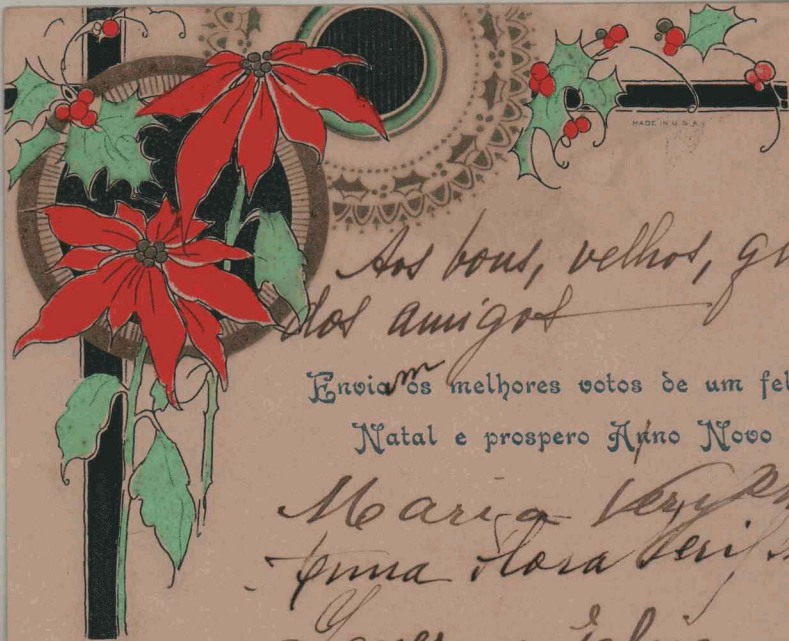 MADE IN U.S.A.
Aos bons, velhos,
dos amigos
Enviam os melhores votos de um fel
Natal e prospero Anno Novo
Maria
Anna Flora